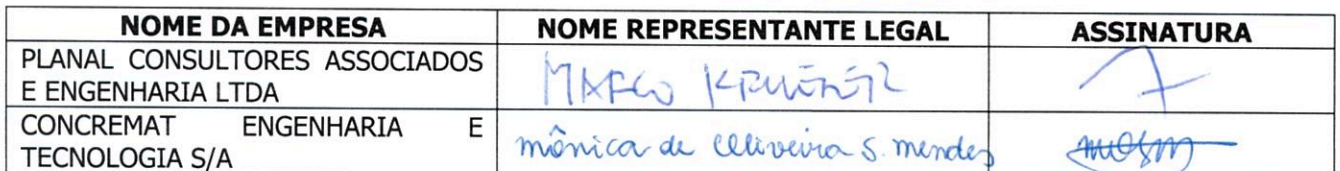 NOME DA EMPRESA NOME REPRESENTANTE LEGAL ASSINATURA
PLANAL CONSULTORES ASSOCIADOS
E ENGENHARIA LTDA
CONCREMAT ENGENHARIA E
TECNOLOGIA S/A
mônica de Oliveira S. mendes